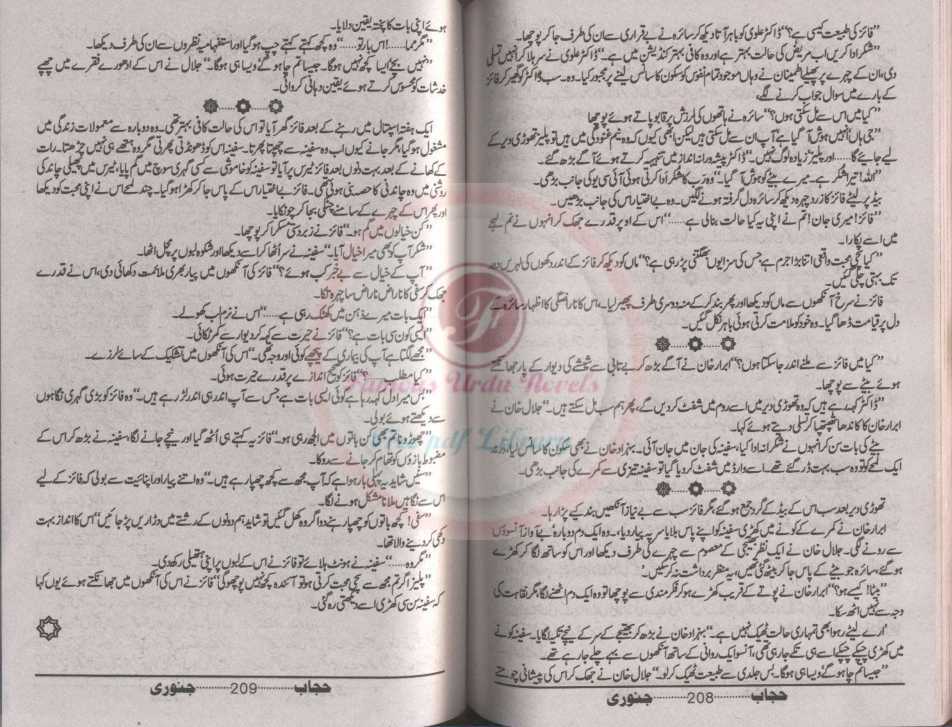 ”فائز کی طبیعت کیسی ہے؟“ ڈاکٹر علوی کو باہر آتا دیکھ کر سائرہ نے بے قراری سے ان کی طرف جا کر پوچھا۔
”شکر ادا کریں اب مریض کی حالت بہتر ہے اور وہ کافی بہتر کنڈیشن میں ہے۔“ ڈاکٹر علوی نے سر ہلا کر انہیں تسلی
دی، ان کے چہرے پر پھیلے اطمینان نے وہاں موجود تمام نفوس کو سکون کا سانس لینے پر مجبور کیا۔ وہ سب ڈاکٹر کو گھیر کر فائز
کے بارے میں سوال جواب کرنے لگے۔
”کیا میں اس سے مل سکتی ہوں؟“ سائرہ نے ہاتھوں کی لرزش پر قابو پاتے ہوئے پوچھا
”جی ہاں انہیں ہوش آگیا ہے آپ ان سے مل سکتی ہیں لیکن ابھی کیوں کہ وہ نیم غنودگی میں ہیں تو پلیز تھوڑی دیر کے
لیے جائیے گا...... اور پلیز زیادہ لوگ نہیں۔“ ڈاکٹر پیشہ ورانہ انداز میں تنبیہہ کرتے ہوئے آگے بڑھ گئے۔
”اللہ! تیرا شکر ہے۔ میرے بیٹے کو ہوش آگیا۔“ وہ رب کا شکر ادا کرتی ہوئی آئی سی یو کی جانب بڑھی۔
بیڈ پر لیٹے فائز کا زرد چہرہ دیکھ کر سائرہ دل گرفتہ ہونے لگیں۔ وہ بے اختیار اس کی جانب بڑھیں۔
”فائز! میری جان! تم نے اپنی یہ کیا حالت بنالی ہے......“ اس کے اوپر قدرے جھک کر انہوں نے نم لہجے
میں اسے پکارا۔
”کیا سچی محبت واقعی اتنا بڑا جرم ہے جس کی سزا یوں بھگتنی پڑ رہی ہے؟“ ماں کو دیکھ کر فائز کے اندر دکھوں کی لہریں دور
تک بہتی چلی گئیں۔
فائز نے سرخ آنکھوں سے ماں کو دیکھا اور پھر بند کر کے منہ دوسری طرف پھیر لیا۔ اس کا ناراضگی کا اظہار سائرہ کے
دل پر قیامت ڈھا گیا۔ وہ خود کو ملامت کرتی ہوئی باہر نکل گئیں۔
”کیا میں فائز سے ملنے اندر جا سکتا ہوں؟“ ابرار خان نے آگے بڑھ کر بے تابی سے شیشے کی دیوار کے پار جھانکتے
ہوئے بیٹے سے پوچھا۔
”ڈاکٹر کہہ رہے ہیں کہ وہ تھوڑی دیر میں اسے روم میں شفٹ کردیں گے، پھر ہم سب مل سکتے ہیں۔“ جلال خان نے
ابرار خان کا کاندھا تھپتھپا کر تسلی دیتے ہوئے کہا۔
بیٹے کی بات سن کر انہوں نے شکرانہ ادا کیا، سفینہ کی جان میں جان آئی۔ بہزاد خان نے بھی سکون کا سانس لیا، ورنہ
ایک لمحے کو تو وہ سب بہت ڈر گئے تھے۔ اسے وارڈ میں شفٹ کر دیا گیا تو سفینہ تیزی سے کمرے کی جانب بڑھی۔
تھوڑی دیر بعد سب اس کے بیڈ کے گرد جمع ہو گئے، مگر فائز سب سے بے نیاز آنکھیں بند کیے پڑا رہا۔
ابرار خان نے کمرے کے کونے میں کھڑی سفینہ کو اپنے پاس بلایا سر پہ پیار دیا، وہ ایک دم دوبارہ بے آواز آنسوؤں
سے رونے لگی۔ جلال خان نے ایک نظر بھتیجی کے معصوم سے چہرے کی طرف دیکھا اور اس کو ساتھ لگا کر کھڑے
ہو گئے، سائرہ جو بیٹے کے پاس جا کر بیٹھ گئی تھیں، یہ منظر برداشت نہ کرسکیں۔
”بیٹا! کیسے ہو؟“ ابرار خان نے پوتے کے قریب کھڑے ہو کر فکر مندی سے پوچھا تو وہ ایک دم اٹھنے لگا، مگر نقاہت کی
وجہ سے نہیں اٹھ سکا۔
”ارے لیٹے رہو ابھی تمہاری حالت ٹھیک نہیں ہے۔“ بہزاد خان نے بڑھ کر بھتیجے کے سر کے نیچے تکیہ لگایا۔ سفینہ کونے
میں کھڑی چپکے چپکے اسے ہی تکے جا رہی تھی، آنسو ایک روانی کے ساتھ آنکھوں سے بہے چلے جا رہے تھے۔
”جیسا تم چاہو گے ویسا ہی ہوگا۔ بس جلدی سے طبیعت ٹھیک کرلو۔“ جلال خان نے جھک کر اس کی پیشانی چومتے
حجاب ............ 208 ............ جنوری
ہوئے اپنی بات کا پختہ یقین دلایا۔
”مگر مما......! اس بار تو......“ وہ کچھ کہتے کہتے چپ ہو گیا اور استفہامیہ نظروں سے ان کی طرف دیکھا۔
”نہیں بچے ایسا کچھ نہیں ہوگا۔ جیسا تم چاہو گے ویسا ہی ہوگا۔“ جلال نے اس کے ادھورے فقرے میں چھپے
خدشات کو محسوس کرتے ہوئے یقین دہانی کروائی۔
ایک ہفتہ اسپتال میں رہنے کے بعد فائز گھر آیا تو اس کی حالت کافی بہتر تھی۔ وہ دوبارہ سے معمولات زندگی میں
مشغول ہو گیا، مگر جانے کیوں اب وہ سفینہ سے چھپتا پھرتا۔ سفینہ اس کو ڈھونڈتی پھرتی مگر وہ ہتھے ہی نہیں چڑھتا۔ رات
کے کھانے کے بعد بہت دنوں بعد فائز ٹیرس پر آیا تو سفینہ کو خاموشی سے کسی گہری سوچ میں گم پایا، ٹیرس میں پھیلی چاندنی
روشنی میں وہ چاندنی کا حصہ بنی ہوئی تھی۔ فائز بے اختیار اس کے پاس جا کر کھڑا ہوگیا۔ چند لمحے اس نے اپنی محبت کو دیکھا
اور پھر اس کے چہرے کے سامنے چٹکی بجا کر چونکایا۔
”کن خیالوں میں گم ہو۔“ فائز نے زبردستی مسکرا کر پوچھا۔
”شکر آپ کو بھی میرا خیال آیا۔“ سفینہ نے سر اٹھا کر اسے دیکھا اور شکوہ لبوں پر مچل اٹھا۔
”آپ کے خیال سے بے خبر کب ہوئے؟“ فائز کی آنکھوں میں پیار بھری ملامت دکھائی دی، اس نے قدرے
جھک کر سفی کا ناراض ناراض سا چہرہ تکا۔
”ایک بات میرے ذہن میں کھٹک رہی ہے......“ اس نے نرم لب کھولے۔
”ایسی کون سی بات ہے؟“ فائز نے حیرت سے کہہ کر دیوار سے کمر ٹکائی۔
”مجھے لگتا ہے آپ کی بیماری کے پیچھے کوئی اور وجہ تھی۔“ اس کی آنکھوں میں تشکیک کے سائے لرزے۔
”کیا مطلب ہے؟“ فائز کو صحیح اندازے پر قدرے حیرت ہوئی۔
”بس میرا دل کہہ رہا ہے کوئی ایسی بات ہے جس سے آپ اندر ہی اندر لڑ رہے ہیں۔“ وہ فائز کو بڑی گہری نگاہوں
سے دیکھتے ہوئے بولی۔
”چھوڑو نا تم بھی کن باتوں میں الجھ رہی ہو۔“ فائز یہ کہتے ہی اٹھ گیا اور نیچے جانے لگا، سفینہ نے بڑھ کر اس کے
مضبوط بازوؤں کو تھام کر جانے سے روکا۔
”نہیں شاید یہ پہلی بار ہوا ہے کہ آپ مجھ سے کچھ چھپا رہے ہیں۔“ وہ اتنے پیار اور اپنائیت سے بولی کہ فائز کے لیے
اس سے نگاہیں ملانا مشکل ہونے لگا۔
”سفی! کچھ باتوں کو چھپا رہنے دو! اگر وہ کھل گئیں تو شاید ہم دونوں کے رشتے میں دراڑیں پڑ جائیں“ اس کا انداز بہت
دکھی کر دینے والا تھا۔
”مگر وہ......“ سفینہ نے ہونٹ ہلائے تو فائز نے اس کے لبوں پر اپنی ہتھیلی رکھ دی۔
”پلیز! اگر تم مجھ سے سچی محبت کرتی ہو تو آئندہ کچھ نہیں پوچھو گی“ فائز نے اس کی آنکھوں میں جھانکتے ہوئے یوں کہا
کہ سفینہ سن سی کھڑی اسے دیکھتی رہ گئی۔
حجاب ............ 209 ............ جنوری
F
Famous Urdu Novels
Free pdf Library